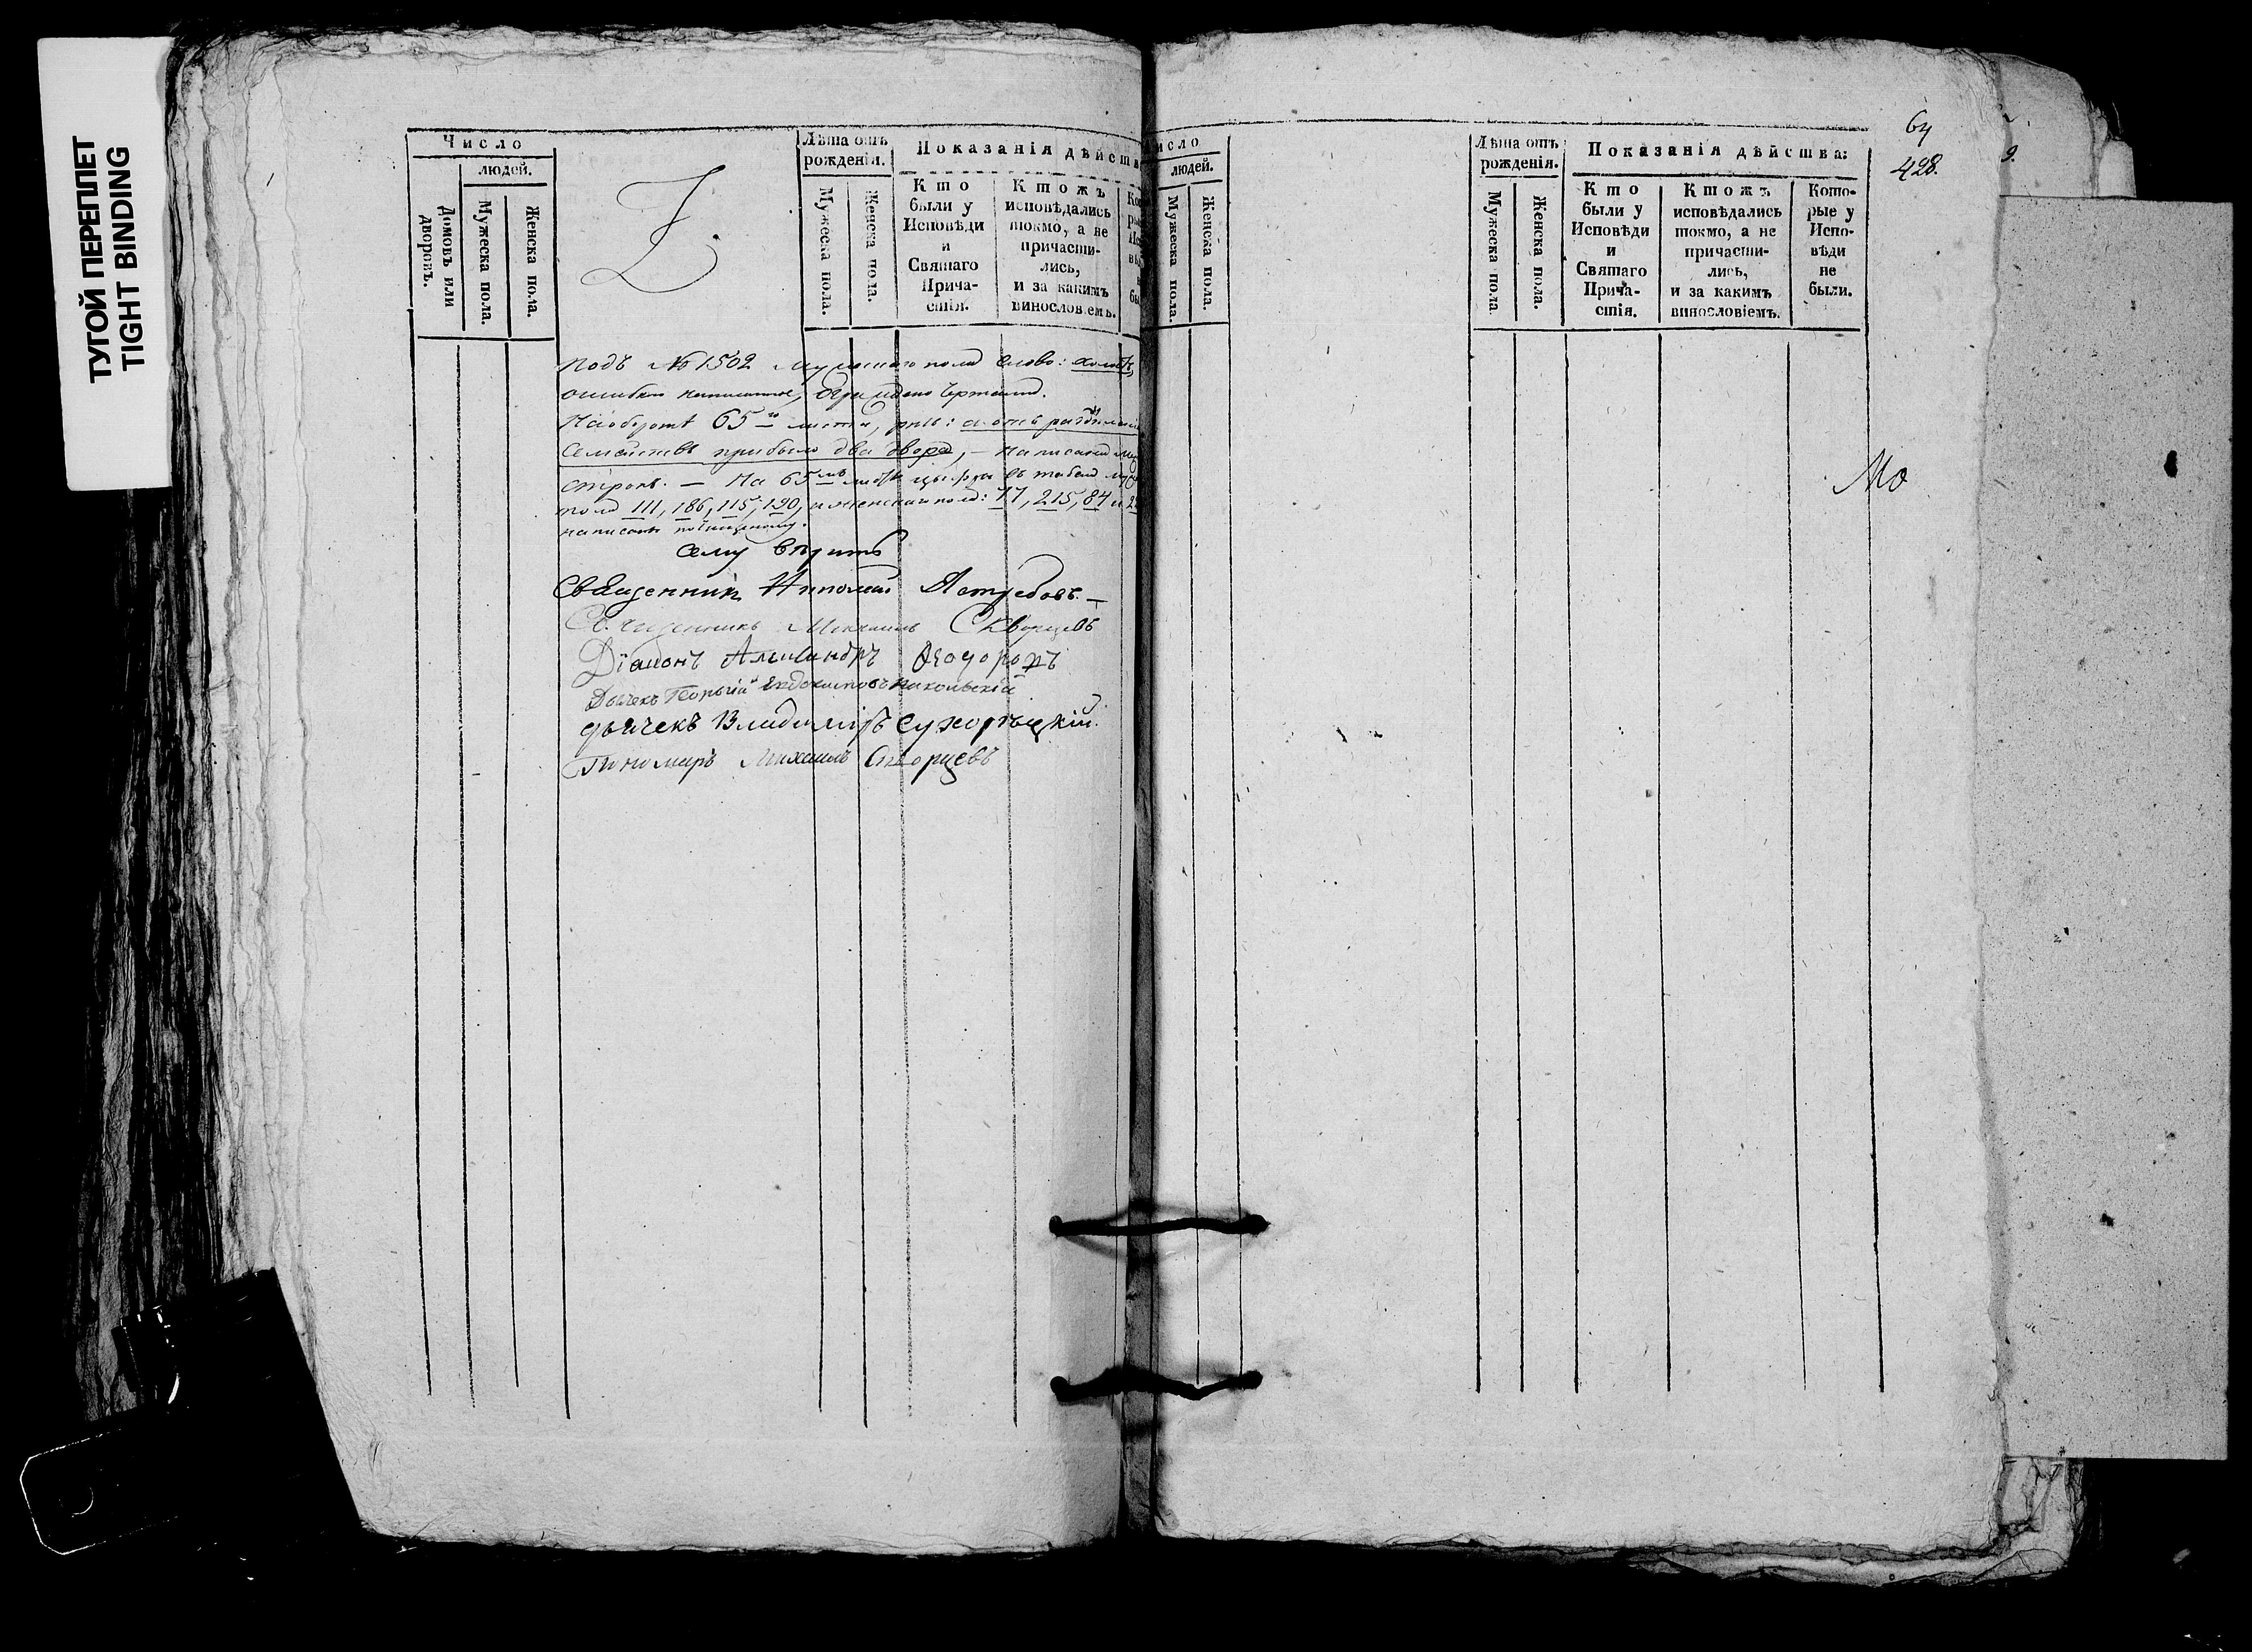 ТУГОЙ ПЕРЕПЛЕТ
TIGHT BINDING
Число
людей.
Домовъ или дворовъ.
Мужеска пола.
Женска пола.
Лѣта отъ рожденія.
Мужеска пола.
Женска пола.
Показанія дѣйства
Кто были у Исповѣди и Святаго Причастія.
Ктожъ исповѣдались токмо, а не причастились, и за какимъ винословіемъ.
Подъ № 1502 мужескаго пола слово:
ошибкою написанное,
На оборотѣ 65го листа,
семействъ прибыло два двора, – написаны
строкъ. – На 65мъ листѣ цыфры въ табели
пола 111, 186, 115, 190, и женскаго пола: 17, 215, 84 и
написаны по чищенному.
Сему вѣрить
Священникъ Ястребовъ. –
Священникъ Михаилъ Скворцовъ
Діаконъ Александръ Ѳеодоровъ
Дьячекъ Георгій Евдокимовъ Никольскій
дьячекъ Владиміръ Сухорѣцкій.
Пономарь Михаилъ Скворцевъ
исло
людей.
Мужеска пола.
Женска пола.
Лѣта отъ рожденія.
Мужеска пола
Женска пола.
Показанія дѣйства:
Кто были у Исповѣди и Святаго Причастія.
Ктожъ исповѣдались токмо, а не причастились, и за какимъ винословіемъ.
Которые у Исповѣди не были.
428.
9.